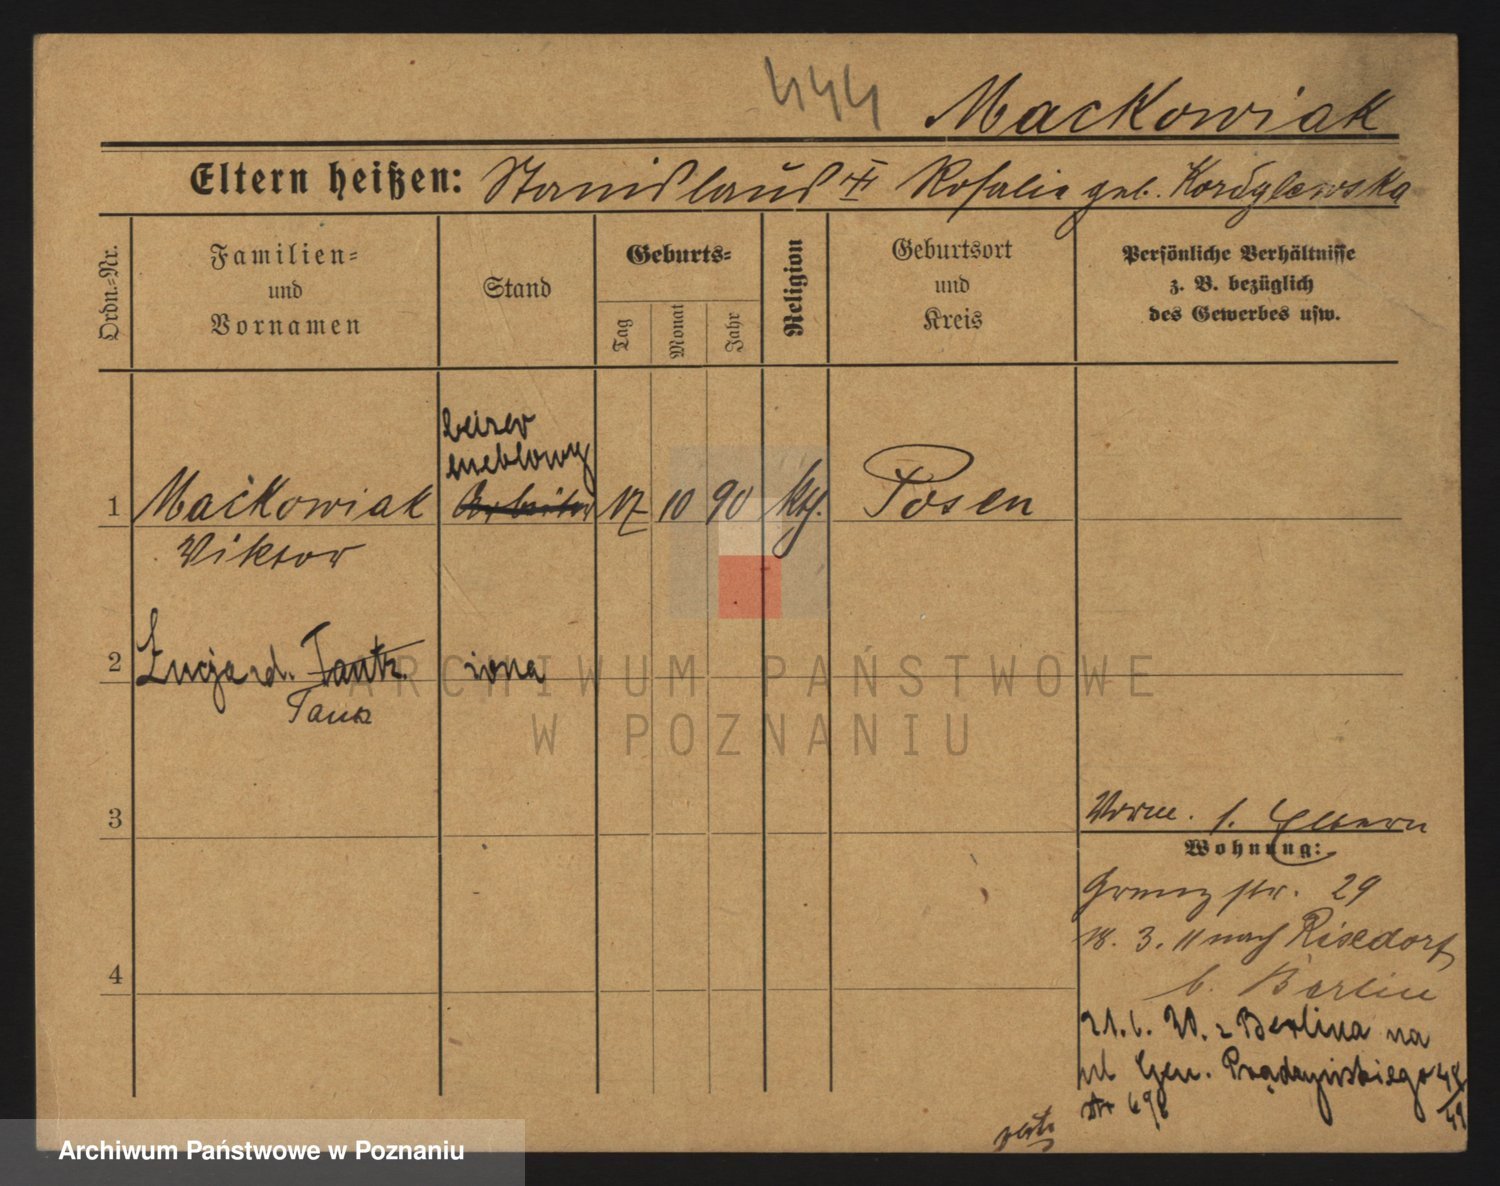 444 Mackowiak
Eltern heißen: Stanislaus III Rosalie geb.
Ordn.-Nr.
Familien-
und
Vornamen
Stand
Geburts-
Tag
Monat
Jahr
Religion
Geburtsort
und
Kreis
Persönliche Verhältnisse
z. B. bezüglich
des Gewerbes usw.
beizer
meblowy
1 Maćkowiak Arbeiter 17 10 90 kth. Posen
Viktor
2 Łucja rd. Tantz. żona
Tanz
3
4
Vorm. s. Eltern
Wohnung:
Grenzstr. 29
18. 3. 11 nach Rixdorf
b. Berlin
21. 6. 20. z Berlina na
ul Gen. Prądzyńskiego 48/49
Nr 698
ARCHIWUM PAŃSTWOWE
W POZNANIU
Archiwum Państwowe w Poznaniu